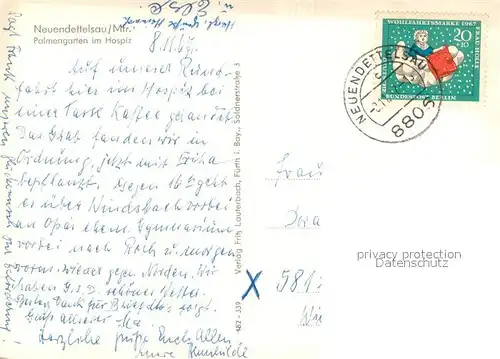 Neuendettelsau/Mfr.
Palmengarten im Hospiz
8.11.67.
Auf unserer Rund-
fahrt hier im Hospiz bei
einer Tasse Kaffee gelandet.
Das Grab fanden wir in
Ordnung, jetzt mit Erika
bepflanzt. Gegen 16 h geht
es über Windsbach vorbei
an Opas ehem. Gymnasium
vorbei nach Roth u. morgen
vorm. wieder gegen Norden. Wir
haben G.s.D. schönes Wetter.
Guten Dank für
folgt.
Herzliche Grüße Euch Allen
Eure
Sagt Frank unseren Glückwunsch zur Beförderung!
Verlag Fritz Lauterbach, Fürth i. Bay., Soldnerstraße 3
482 - 339
WOHLFAHRTSMARKE 1967
FRAU HOLLE
20
+10
DEUTSCHE BUNDESPOST BERLIN
NEUENDETTELSAU
8805
Frau
x 581
privacy protection
Datenschutz